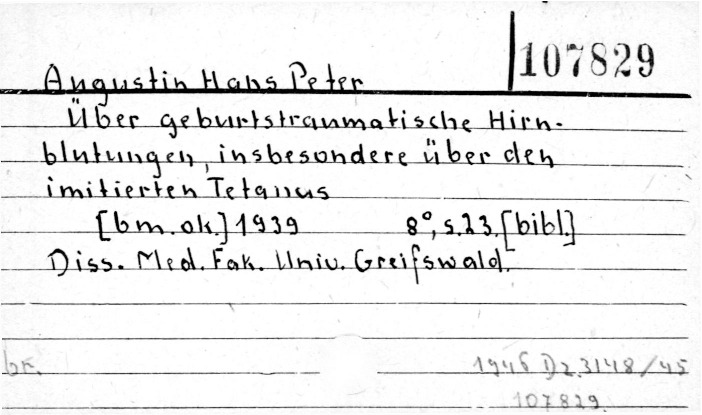 107829
Augustin Hans Peter
Über geburtstraumatische Hirn-
blutungen, insbesondere über den
imitierten Tetanus
[bm. ok.] 1939 8°, s. 23. [bibl.]
Diss. Med. Fak. Univ. Greifswald.
br. 1946 Dz. 3148/45
107829